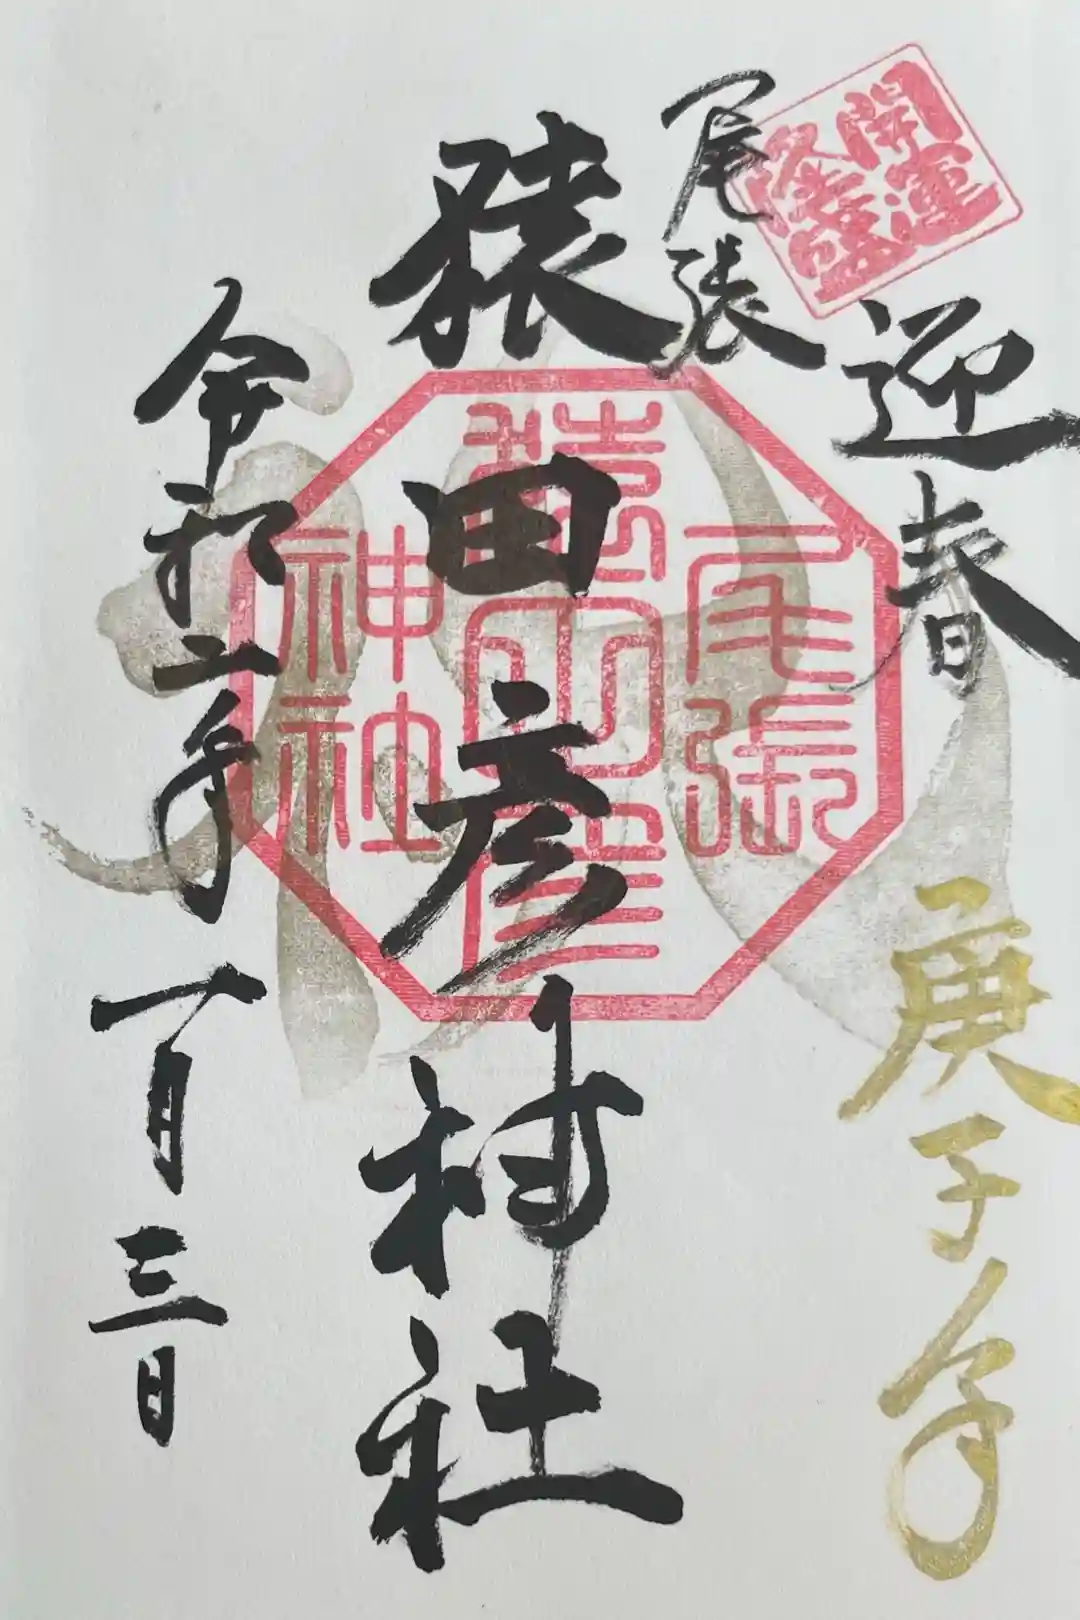 開運
隆盛
迎春
庚子年
尾張
猿田彦神社
尾張
猿田彦
神社
令和二年一月三日